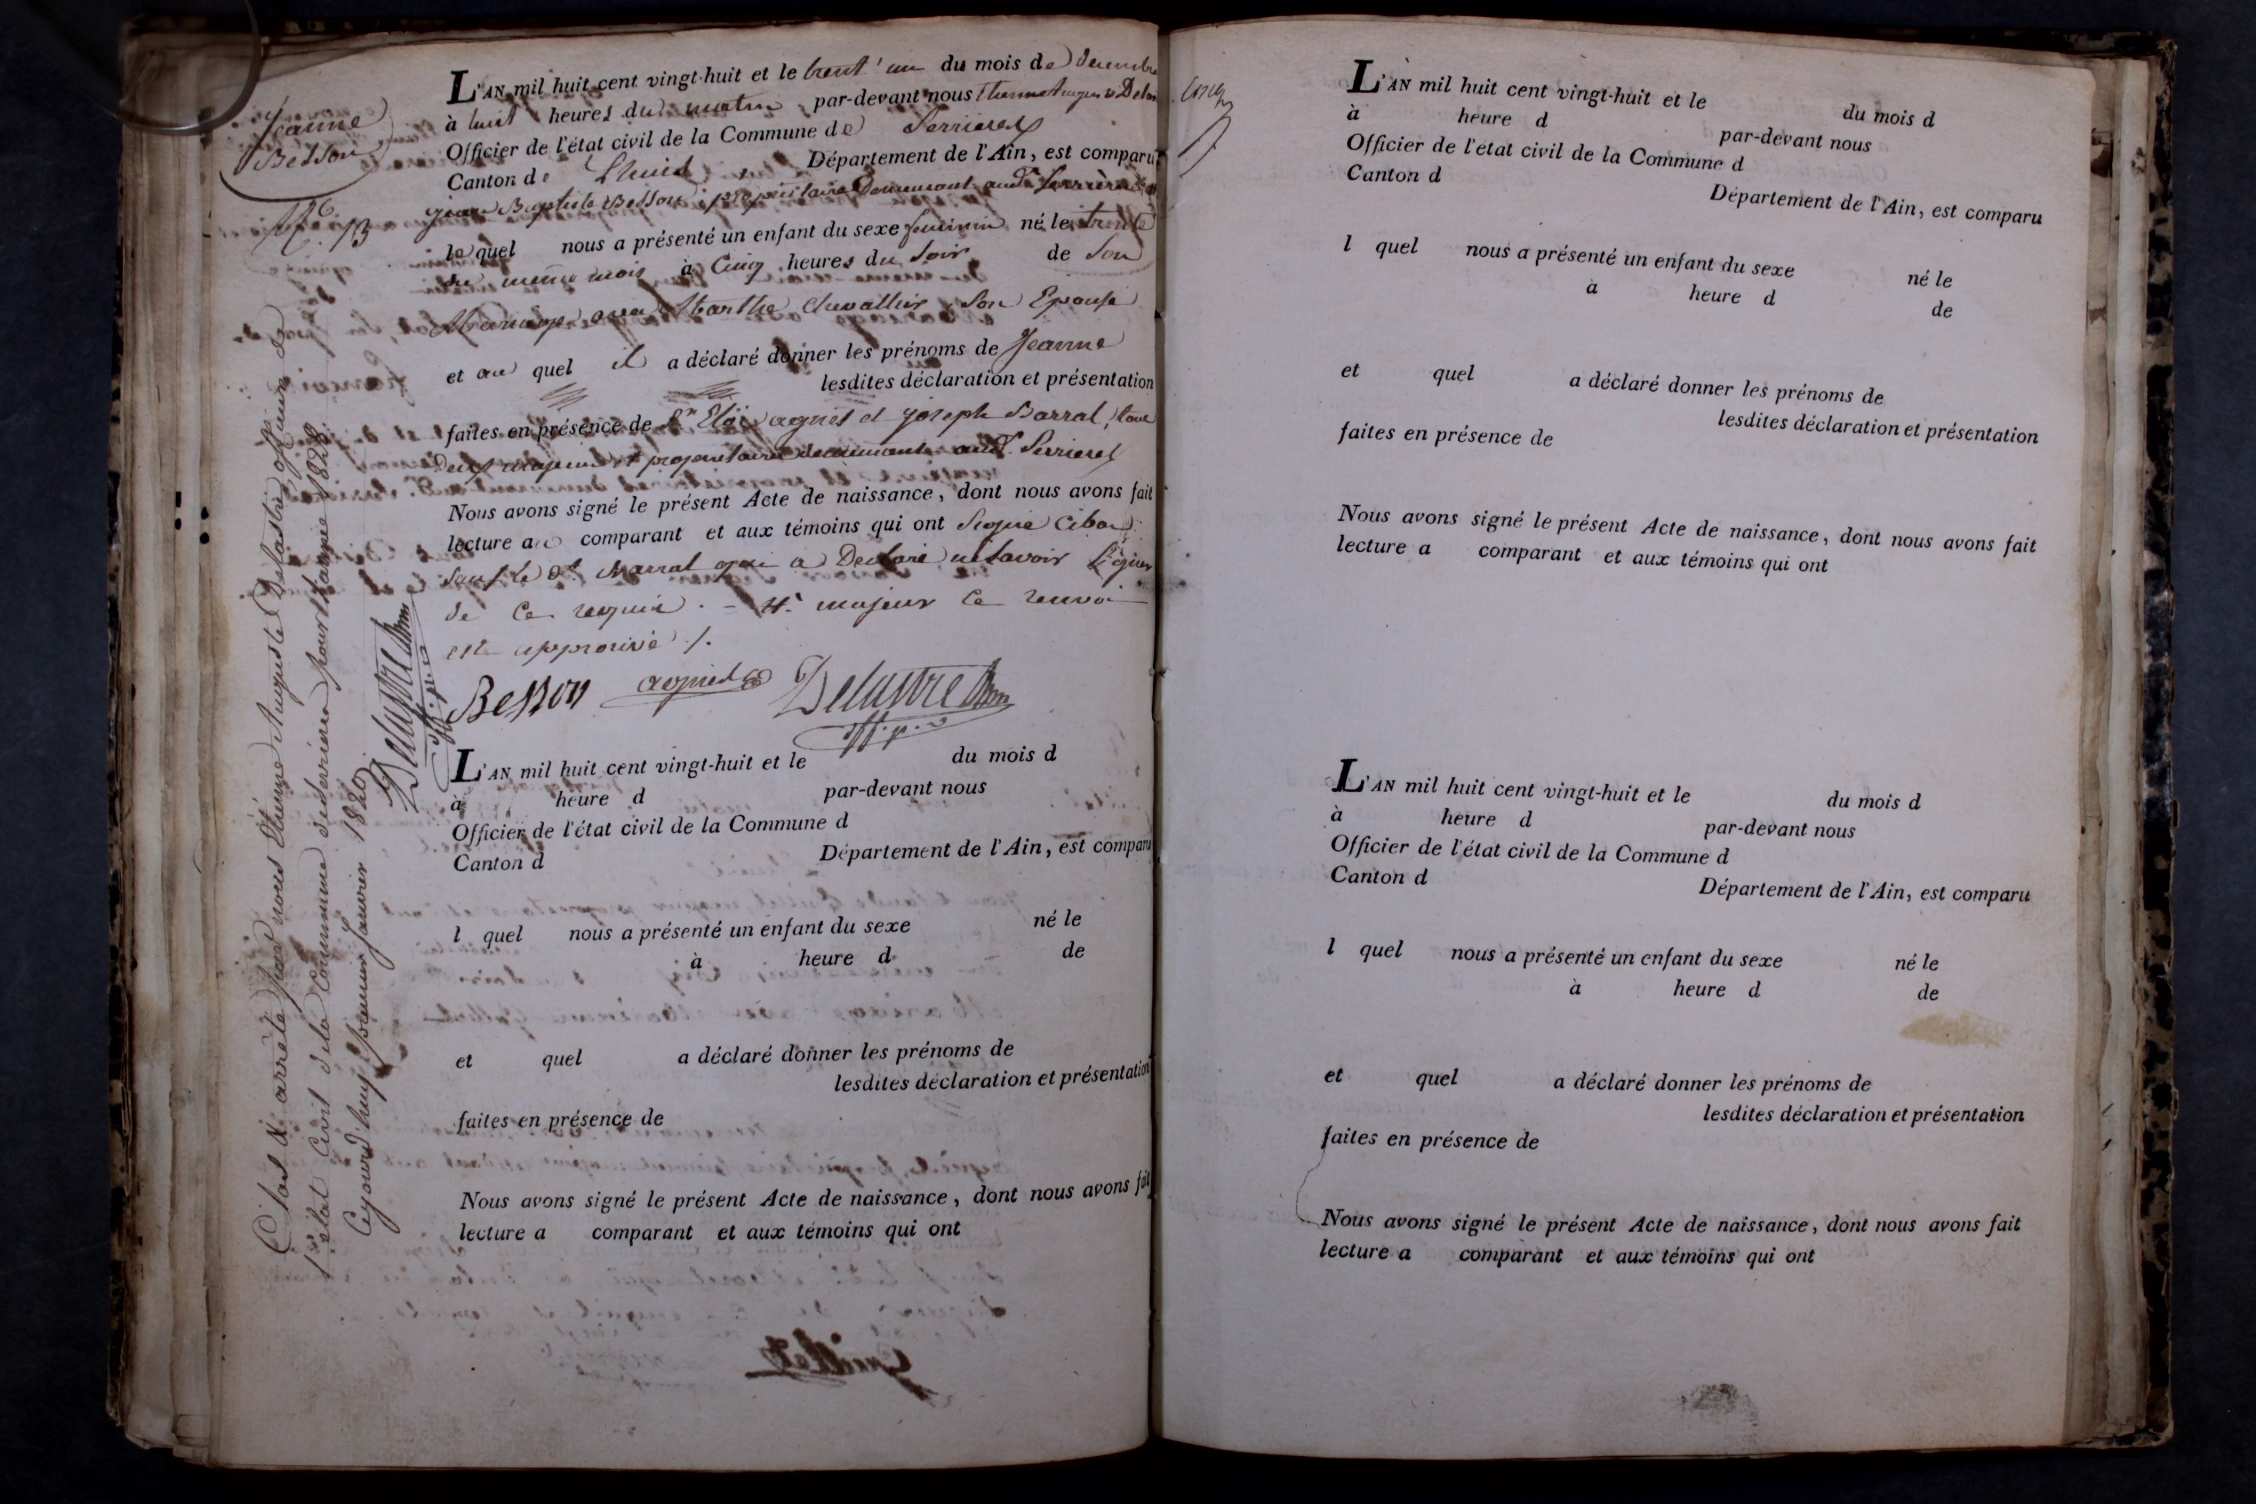 Jeanne
Besson
N.° 13
L'AN mil huit cent vingt-huit et le trent'un du mois de decembre
à huit heures du matin par-devant nous Etienne Auguste Delas
Officier de l'état civil de la Commune de Serrieres
Canton de Lhuis Département de l'Ain, est comparu
jean Baptiste Besson propriétaire Demeurant aud.t Serrières
le quel nous a présenté un enfant du sexe feminin né le trente
du même mois à Cinq heures du Soir de Son
Mariage avec Marthe Chevallier Son Epouse
et au quel il a déclaré donner les prénoms de Jeanne
lesdites déclaration et présentation
faites en présence de S.r Eloi agniel et joseph Barral, tous
Deux majeurs propriétaires demeurants aud.t Serrieres
Nous avons signé le présent Acte de naissance, dont nous avons fait
lecture au comparant et aux témoins qui ont Signé
Sauf le d.t Barral qui a Declaré ne Savoir Signer
de Ce requis . = majeur Ce renvoi
est approuvé /.
Besson agniel Delastre
off. p.
Clos & arrêté par nous Etienne Auguste Delastre officier de
l'état Civil de la Commune de Serrieres pour l'année 1828
Cejourd'huy premier Janvier 1829
Delastre
off. p.
L'AN mil huit cent vingt-huit et le du mois d
à heure d par-devant nous
Officier de l'état civil de la Commune d
Canton d Département de l'Ain, est comparu
l quel nous a présenté un enfant du sexe né le
à heure d de
et quel a déclaré donner les prénoms de
lesdites déclaration et présentation
faites en présence de
Nous avons signé le présent Acte de naissance, dont nous avons fait
lecture a comparant et aux témoins qui ont
L'AN mil huit cent vingt-huit et le du mois d
à heure d par-devant nous
Officier de l'état civil de la Commune d
Canton d Département de l'Ain, est comparu
l quel nous a présenté un enfant du sexe né le
à heure d de
et quel a déclaré donner les prénoms de
lesdites déclaration et présentation
faites en présence de
Nous avons signé le présent Acte de naissance, dont nous avons fait
lecture a comparant et aux témoins qui ont
L'AN mil huit cent vingt-huit et le du mois d
à heure d par-devant nous
Officier de l'état civil de la Commune d
Canton d Département de l'Ain, est comparu
l quel nous a présenté un enfant du sexe né le
à heure d de
et quel a déclaré donner les prénoms de
lesdites déclaration et présentation
faites en présence de
Nous avons signé le présent Acte de naissance, dont nous avons fait
lecture a comparant et aux témoins qui ont